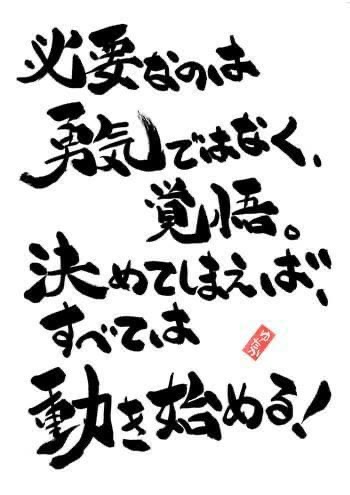 必要なのは
勇気ではなく、
覚悟。
決めてしまえば、
すべては
動き始める！
ゆたか